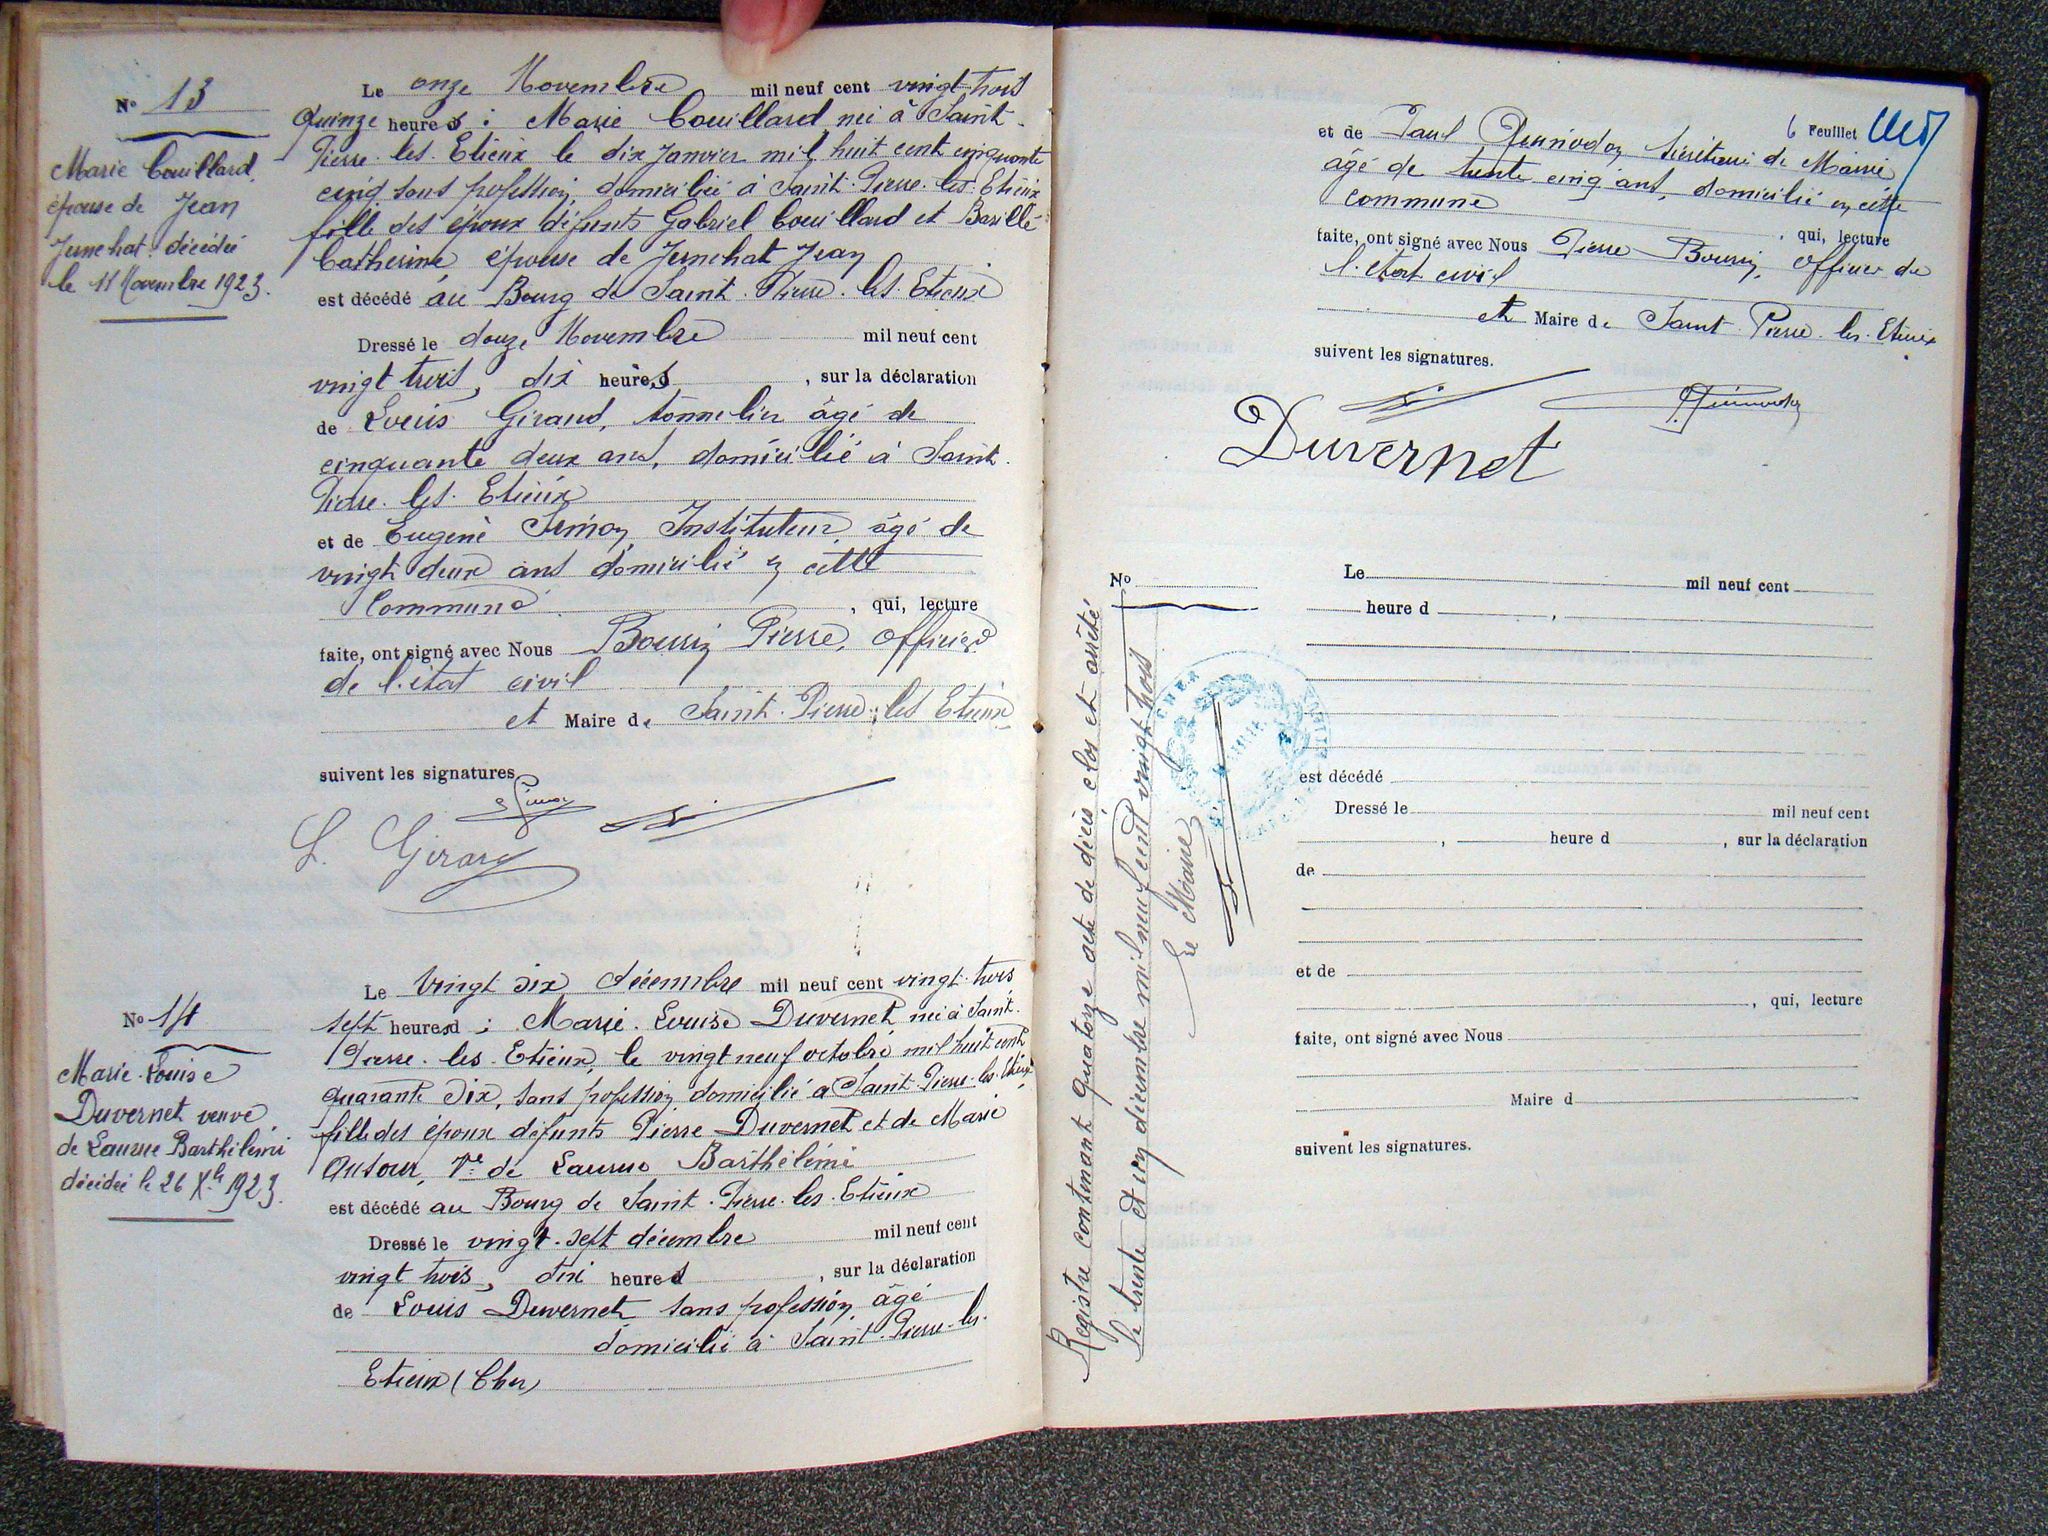 No 13
Marie Couillard
épouse de Jean
Jumehat décédée
le 11 Novembre 1923.
Le onze Novembre mil neuf cent vingt trois
quinze heures : Marie Couillard née à Saint-
Pierre-les-Etieux le dix Janvier mil huit cent cinquante
cinq sans profession, domiciliée à Saint-Pierre-les-Etieux
fille des époux défunts Gabriel Couillard et Barillé
Catherine épouse de Jumehat Jean
est décédé au Bourg de Saint-Pierre-les-Etieux
Dressé le douze Novembre mil neuf cent
vingt trois, dix heures, sur la déclaration
de Louis Giraud, tonnelier âgé de
cinquante deux ans, domicilié à Saint-
Pierre-les-Etieux
et de Eugène Simon, Instituteur, âgé de
vingt deux ans domicilié en cette
Commune, qui, lecture
faite, ont signé avec Nous Bourin Pierre, officier
de l'état civil
et Maire de Saint-Pierre-les Etieux
suivent les signatures
E Simon
L. Girard
No 14
Marie-Louise
Duvernet veuve
de Barthélémi
décédée le 26 Xbre 1923.
Le Vingt six décembre mil neuf cent vingt-trois
sept heures d : Marie-Louise Duvernet née à Saint-
Pierre-les-Etieux, le vingt neuf octobre mil huit cent
quarante six, sans profession, domicilié à Saint-Pierre-les-Etieux
fille des époux défunts Pierre Duvernet et de Marie
Autour, Ve de Barthélémi
est décédé au Bourg de Saint-Pierre-les-Etieux
Dressé le vingt-sept décembre mil neuf cent
vingt trois, dix heures, sur la déclaration
de Louis Duvernet sans profession, âgé
domicilié à Saint-Pierre-les-
Etieux (Cher)
6 Feuillet
et de Paul secrétaire de Mairie
âgé de trente cinq ans, domicilié en cette
commune, qui, lecture
faite, ont signé avec Nous Pierre Bourin, officier de
l'état civil
et Maire de Saint-Pierre-les-Etieux
suivent les signatures.
Duvernet
Registre contenant quatorze acte de décès clos et arrêté
le trente et un décembre mil neuf cent vingt trois
Le Maire
CHER
MAIRIE
No
Le mil neuf cent
heure d ,
est décédé
Dressé le mil neuf cent
, heure d , sur la déclaration
de
et de
, qui, lecture
faite, ont signé avec Nous
Maire d
suivent les signatures.